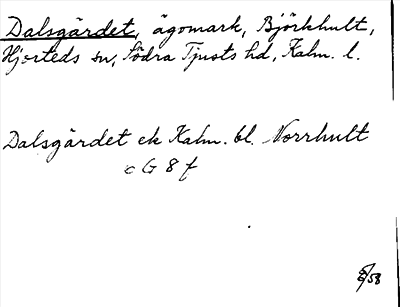 Dalsgärdet, ägomark, Björkhult,
Hjorteds sn, Södra Tjusts hd, Kalm. l.
Dalsgärdet ek Kalm. bl. Norrhult
c G 8 f
/58